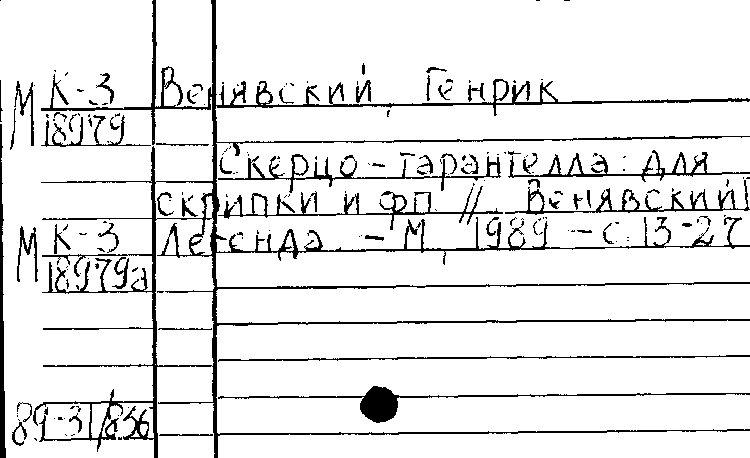 М К-3 Венявский, Генрик
18979
Скерцо-тарантелла: для
скрипки и фп // Венявский Г
М К-3 Легенда. - М, 1989 - с. 13-27
18979а
89-31/836